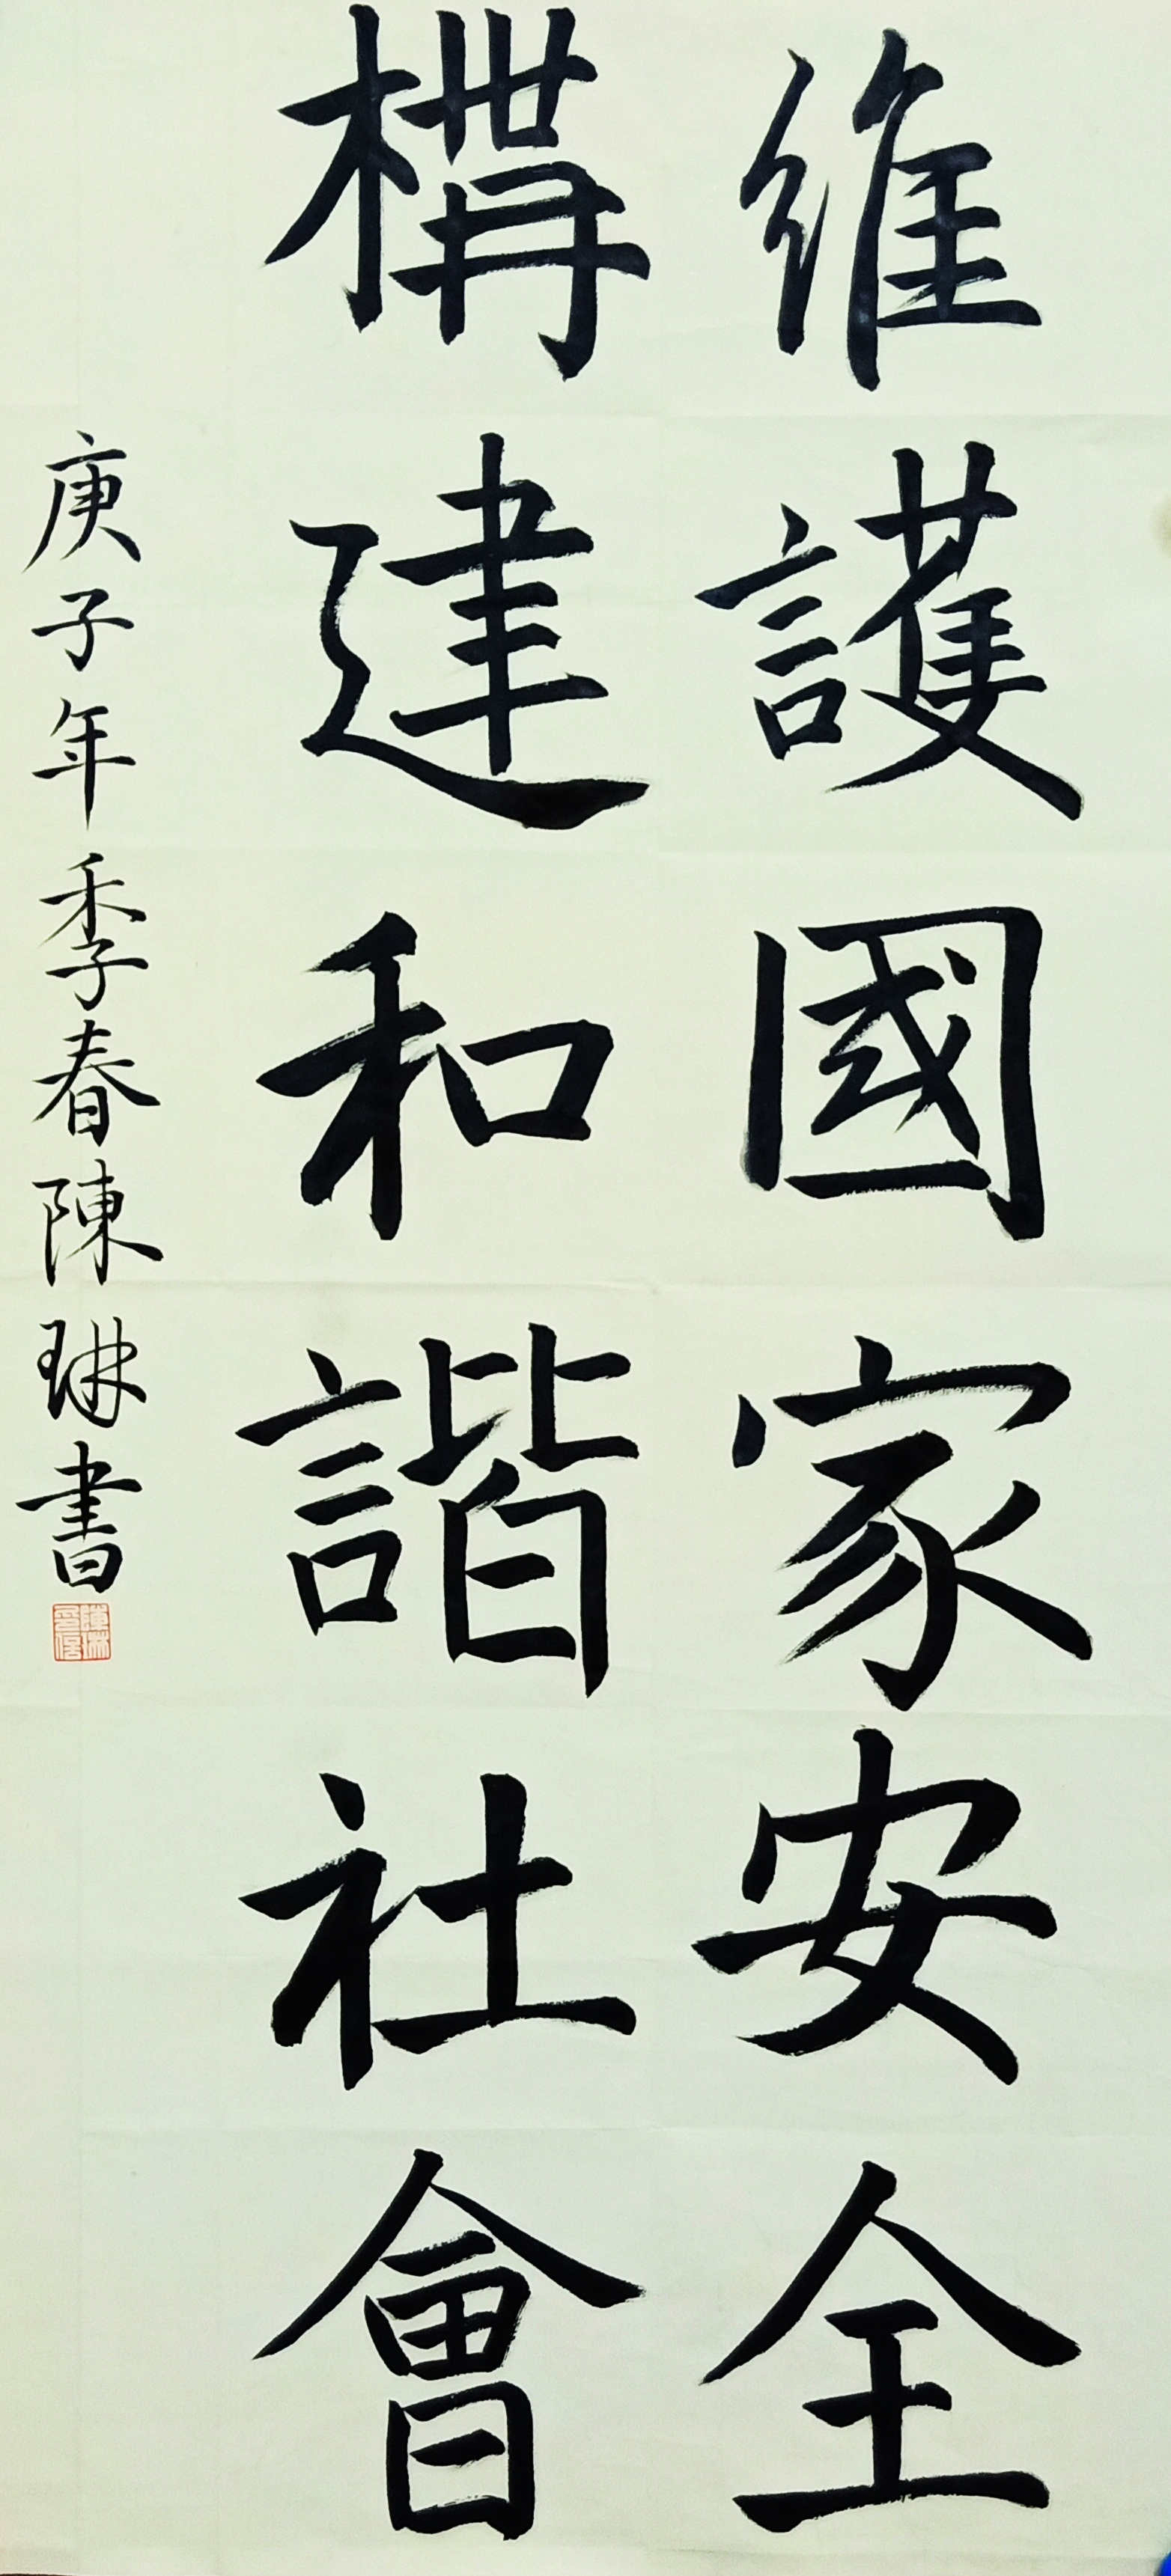 維護國家安全
構建和諧社會
庚子年季春陳琳書